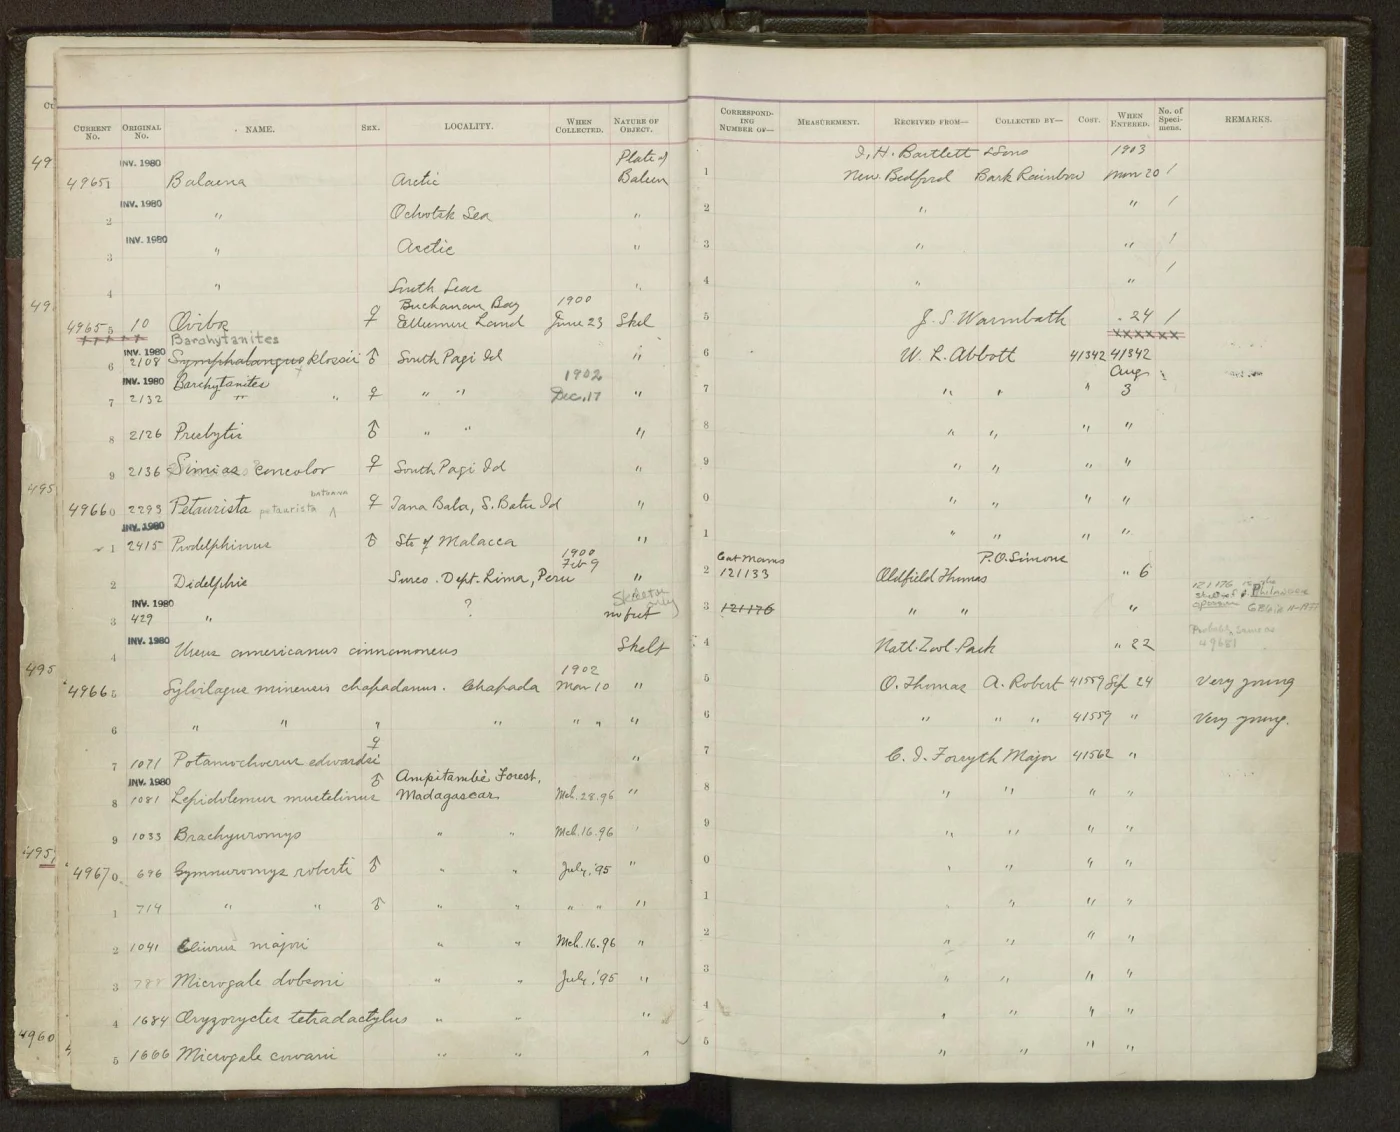 CURRENT No. ORIGINAL No. NAME. SEX. LOCALITY. WHEN COLLECTED. NATURE OF OBJECT. CORRESPONDING NUMBER OF— MEASUREMENT. RECEIVED FROM— COLLECTED BY— COST. WHEN ENTERED. No. of Specimens. REMARKS.
INV. 1980 Plate of I. H. Bartlett & Sons 1903
49651 Balaena Arctic Baleen 1 New Bedford Bark Rainbow 20 1
INV. 1980
2 " Ochotsk Sea " 2 " " 1
INV. 1980
3 " Arctic " 3 " " 1
4 " South Seas " 4 " " 1
Buchanan Bay 1900
49655 10 Ovibos ♀ Ellesmere Land June 23 Skel 5 J. S. Warmbath " 24 1
Barchytanites
INV. 1980
6 2108 Symphalangus klossii ♂ South Pagi Id " 6 W. L. Abbott 41342 41342
INV. 1980 Barchytanites 1902 Aug
7 2132 " " ♀ " " Dec. 17 " 7 " " " 3
8 2126 Presbytis ♂ " " " 8 " " " "
9 2136 Simias concolor ♀ South Pagi Id " 9 " " " "
49660 2293 Petaurista petaurista batuana ♀ Tana Bala, S. Batu Id " 0 " " " "
INV. 1980
1 2415 Prodelphinus ♂ Sts of Malacca " 1 " " " "
1900
Feb 9 Cat Mams P.O. Simons
2 Didelphis Surco. Dept. Lima, Peru " 2 121133 Oldfield Thomas " 6
INV. 1980 Skeleton only
3 429 " ? no feet 3 121176 " " "
INV. 1980
4 Ursus americanus cinnamoneus Skelt 4 Natl. Zool. Park " 22
Probably same as 49681
1902
49665 Sylvilagus minensis chapadanus. Chapada 10 " 5 O. Thomas A. Robert 41559 Sep 24 Very young
6 " " " " " " " 6 " " " 41559 " Very young.
7 1071 Potamochoerus edwardsi ♀ " 7 C. I. Forsyth Major 41562 "
INV. 1980 ♂ Ampitambè Forest,
8 1081 Lepidolemur mustelinus Madagascar Mch. 28. 96 " 8 " " " "
9 1033 Brachyuromys " " Mch. 16. 96 ' 9 " " " "
49670 696 Gymnuromys roberti ♂ " " July, '95 " 0 " " " "
1 714 " " ♂ " " " " " 1 " " " "
2 1041 Eliurus majori " " Mch. 16. 96 " 2 " " " "
3 Microgale dobsoni " " July, '95 " 3 " " " "
4 1684 Oryzoryctes tetradactylus " " " 4 " " " "
5 1666 Microgale cowani " " " 5 " " " "
49
49
495
495
495
4960